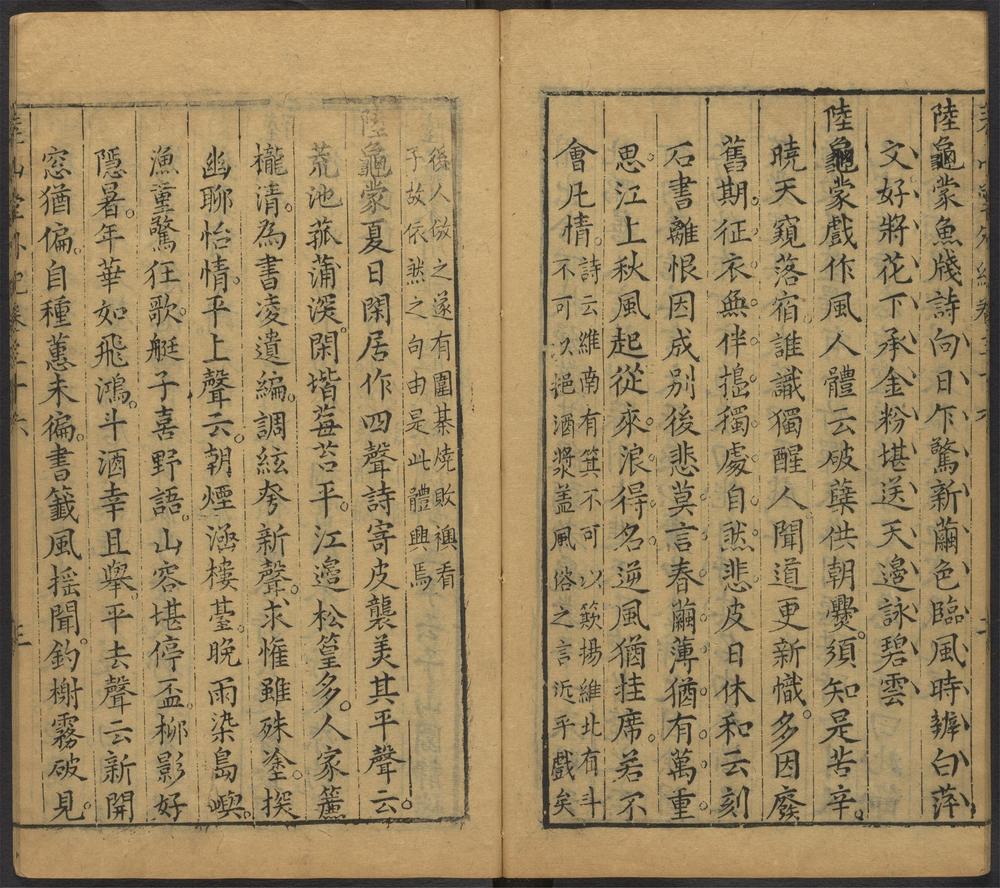 陸龜蒙魚牋詩向日乍驚新繭色臨風時辨白萍
文好將花下承金粉堪送天邊詠碧雲
陸龜蒙戲作風人體云破蘗供朝爨須知是苦辛
曉天窺落宿誰識獨醒人聞道更新幟多因廢
舊期征衣無伴搗獨處自然悲皮日休和云刻
石書離恨因成别後悲莫言春繭薄猶有萬重
思江上秋風起從來浪得名逆風猶挂席若不
會凡情
詩云維南有箕不可以簸揚維北有斗
不可以挹酒漿盖風俗之言近乎戲矣
後人倣之遂有圍棊燒敗襖看
子故依然之句由是此體興焉
陸龜蒙夏日閑居作四聲詩寄皮襲美其平聲云
荒池菰蒲深閑堦莓苔平江邉松篁多人家簾
櫳清為書凌遺編調絃夸新聲求懽雖殊塗探
幽聊怡情平上聲云朝煙涵樓臺晚雨染島嶼
漁童驚狂歌艇子喜野語山容堪停盃柳影好
隱暑年華如飛鴻斗酒幸且舉平去聲云新開
窓猶偏自種蕙未徧書籖風摇聞釣榭霧破見